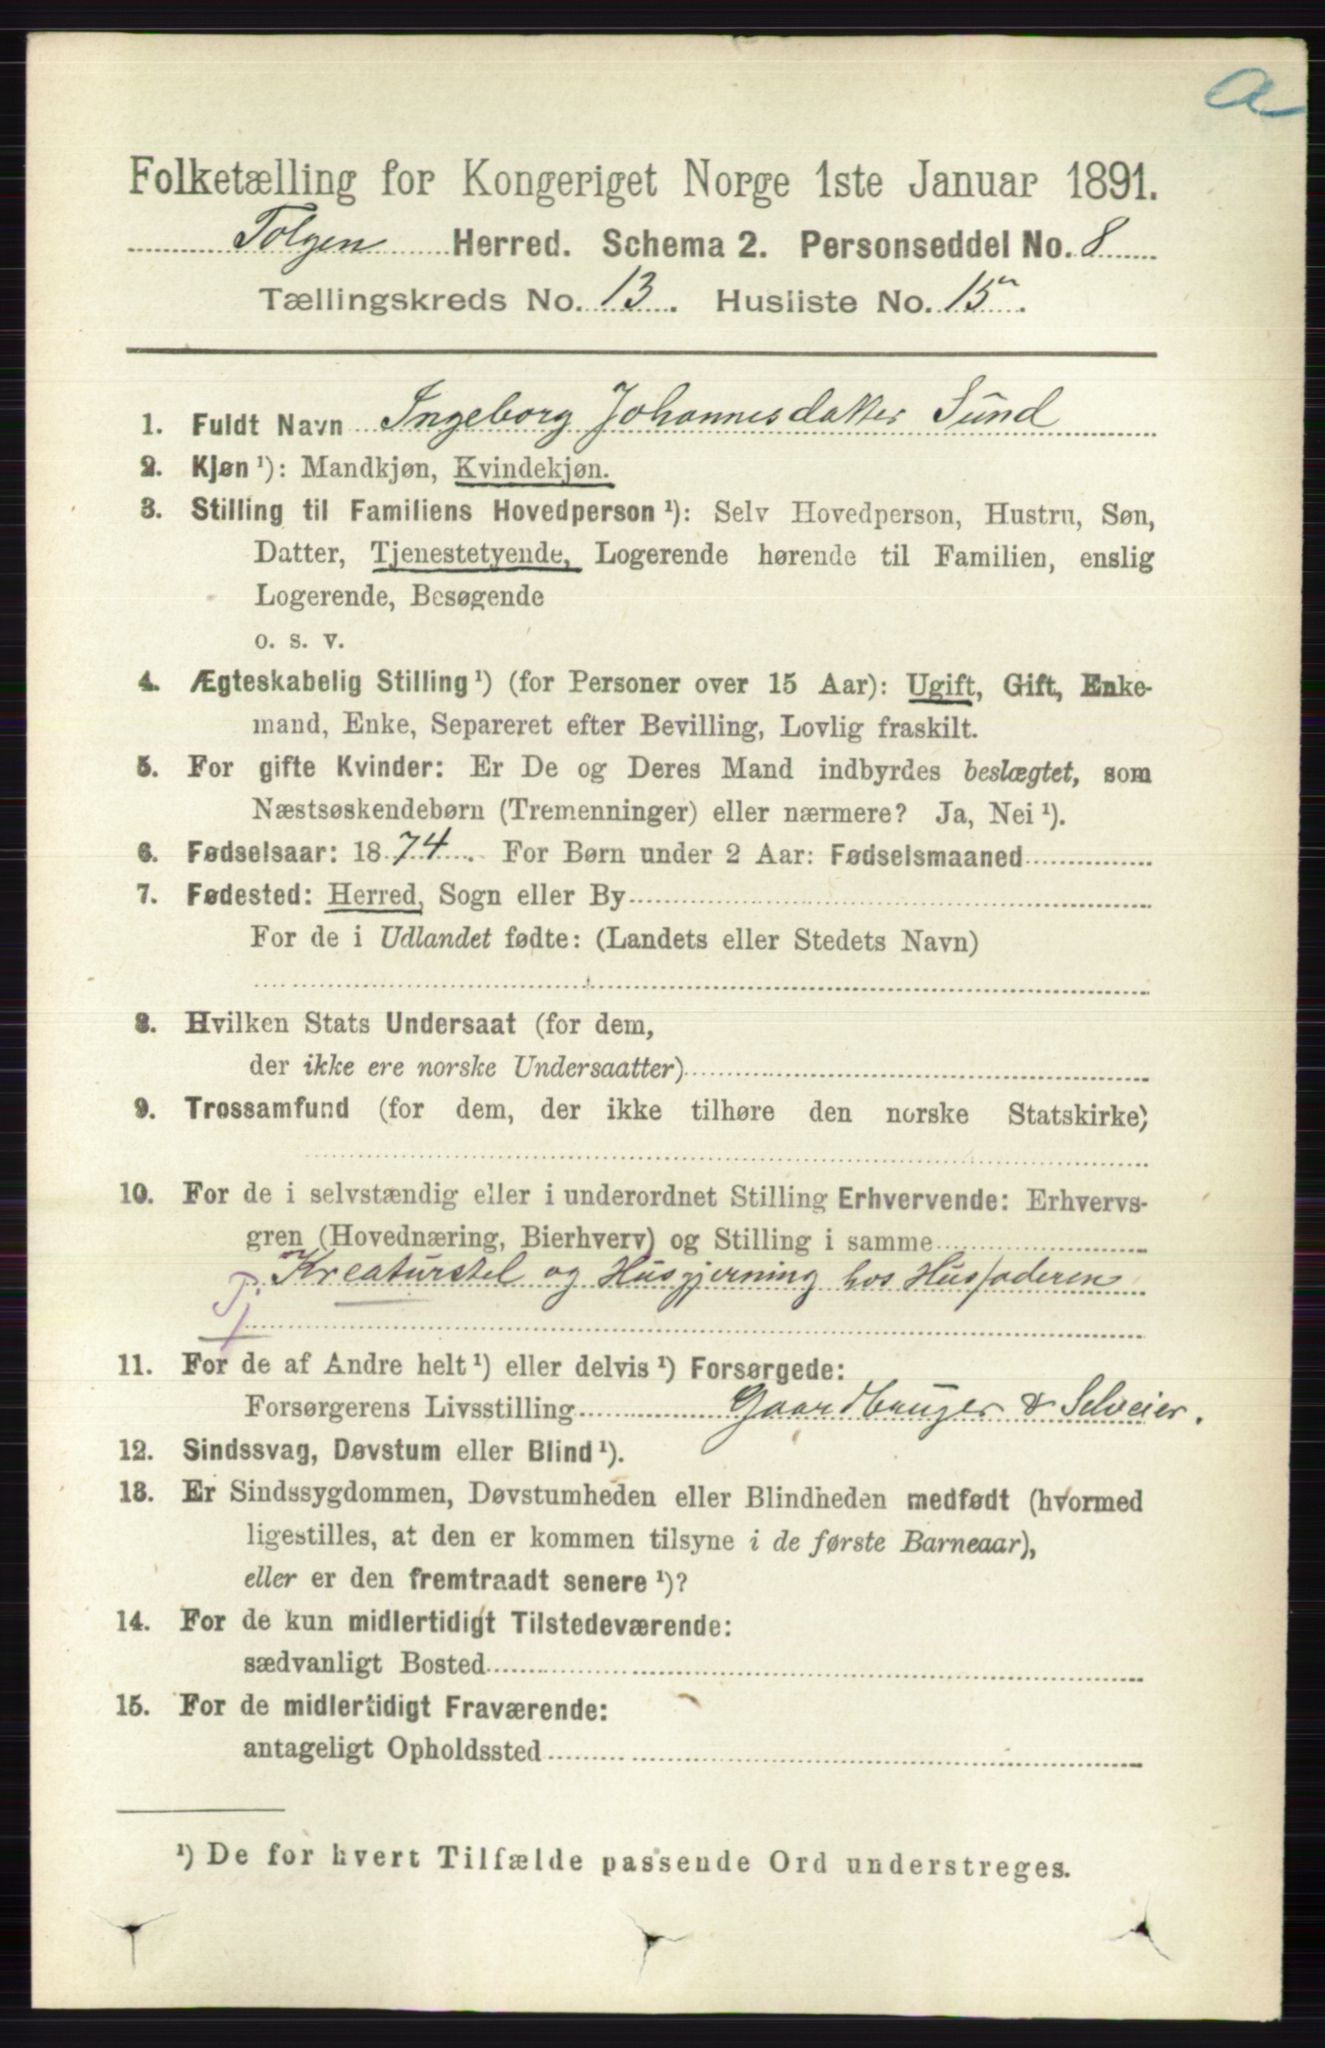 a
Folketælling for Kongeriget Norge 1ste Januar 1891.
Tolgen Herred. Schema 2. Personseddel No. 8
Tællingskreds No. 13. Husliste No. 15.
1. Fuldt Navn Ingeborg Johannesdatter Sund
2. Kjøn ¹): Mandkjøn, Kvindekjøn.
3. Stilling til Familiens Hovedperson ¹): Selv Hovedperson, Hustru, Søn,
Datter, Tjenestetyende, Logerende hørende til Familien, enslig
Logerende, Besøgende
o. s. v.
4. Ægteskabelig Stilling ¹) (for Personer over 15 Aar): Ugift, Gift, Enke-
mand, Enke, Separeret efter Bevilling, Lovlig fraskilt.
5. For gifte Kvinder: Er De og Deres Mand indbyrdes beslægtet, som
Næstsøskendebørn (Tremenninger) eller nærmere? Ja, Nei ¹).
6. Fødselsaar: 1874. For Børn under 2 Aar: Fødselsmaaned
7. Fødested: Herred, Sogn eller By
For de i Udlandet fødte: (Landets eller Stedets Navn)
8. Hvilken Stats Undersaat (for dem,
der ikke ere norske Undersaatter)
9. Trossamfund (for dem, der ikke tilhøre den norske Statskirke)
10. For de i selvstændig eller i underordnet Stilling Erhvervende: Erhvervs-
gren (Hovednæring, Bierhverv) og Stilling i samme
Kreaturstel og Husgjerning hos Husfaderen
Tj.
11. For de af Andre helt ¹) eller delvis ¹) Forsørgede:
Forsørgerens Livsstilling Gaardbruger & Selveier.
12. Sindssvag, Døvstum eller Blind ¹).
13. Er Sindssygdommen, Døvstumheden eller Blindheden medfødt (hvormed
ligestilles, at den er kommen tilsyne i de første Barneaar),
eller er den fremtraadt senere ¹)?
14. For de kun midlertidigt Tilstedeværende:
sædvanligt Bosted
15. For de midlertidigt Fraværende:
antageligt Opholdssted
¹) De for hvert Tilfælde passende Ord understreges.